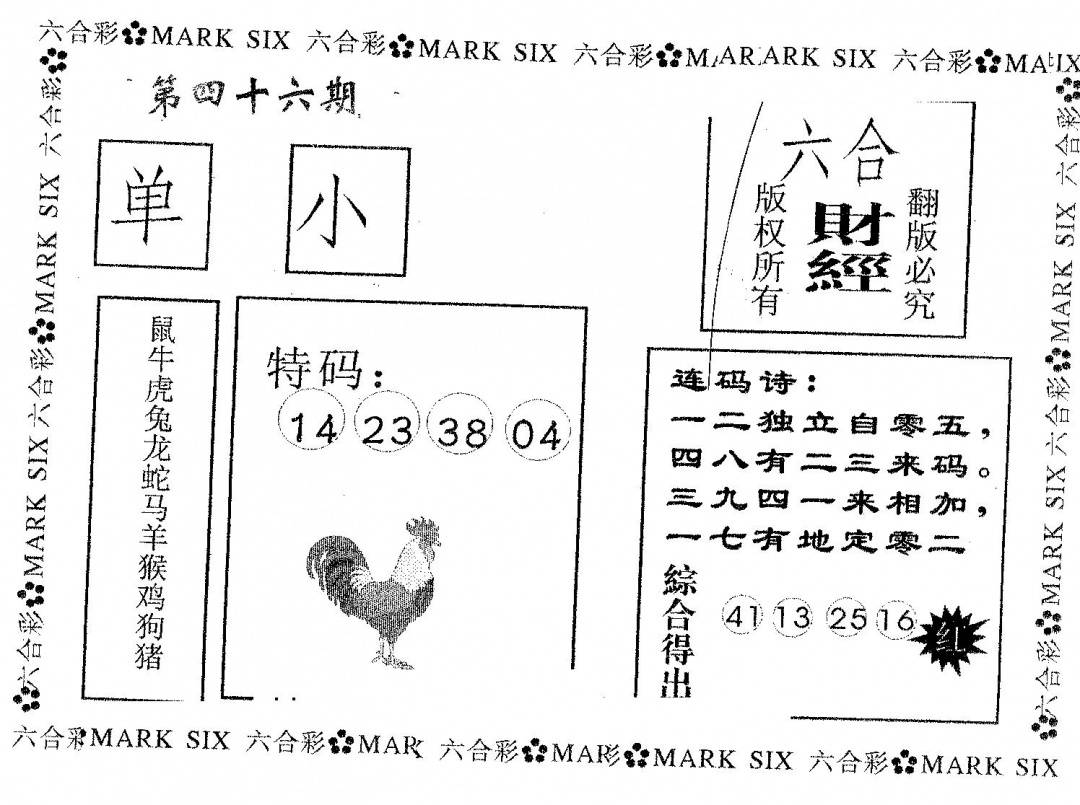 六合彩 MARK SIX 六合彩 MARK SIX 六合彩 MAR ARK SIX 六合彩 MA IX
第四十六期
单
小
六合
财經
版权所有
翻版必究
鼠牛虎兔龙蛇马羊猴鸡狗猪
特码：
14 23 38 04
连码诗：
一二独立自零五，
四八有二三来码。
三九四一来相加，
一七有地定零二
綜合得出
41 13 25 16
红
六合彩 MARK SIX 六合彩 MARK SIX 六合彩
六合彩 MARK SIX 六合彩 MARK SIX 六合彩
六合彩 MARK SIX 六合彩 MAR 六合彩 MAR MARK SIX 六合彩 MARK SIX